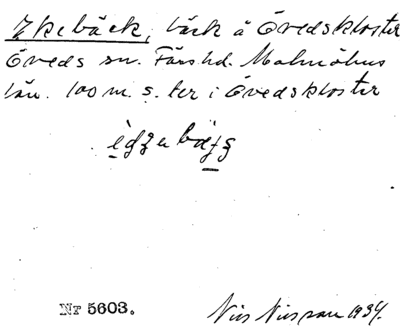 bäck å Övedskloster
Öveds sn. Färs hd. Malmöhus
län. 100 m. s. ter i Övedskloster
Nr 5603.
Nils Nilsson 1934.